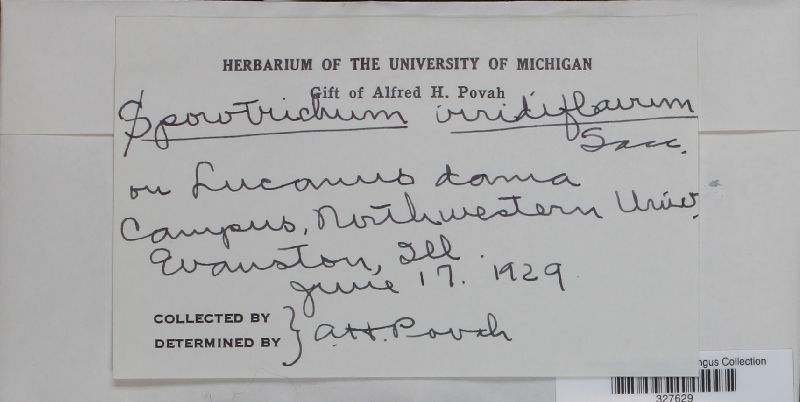 HERBARIUM OF THE UNIVERSITY OF MICHIGAN
Gift of Alfred H. Povah
Sporotrichum viridiflavum
Sacc.
on Lucanus dama
Campus, Northwestern Univ.
Evanston, Ill.
June 17. 1929
COLLECTED BY
DETERMINED BY } A.H. Povah
ngus Collection
327629